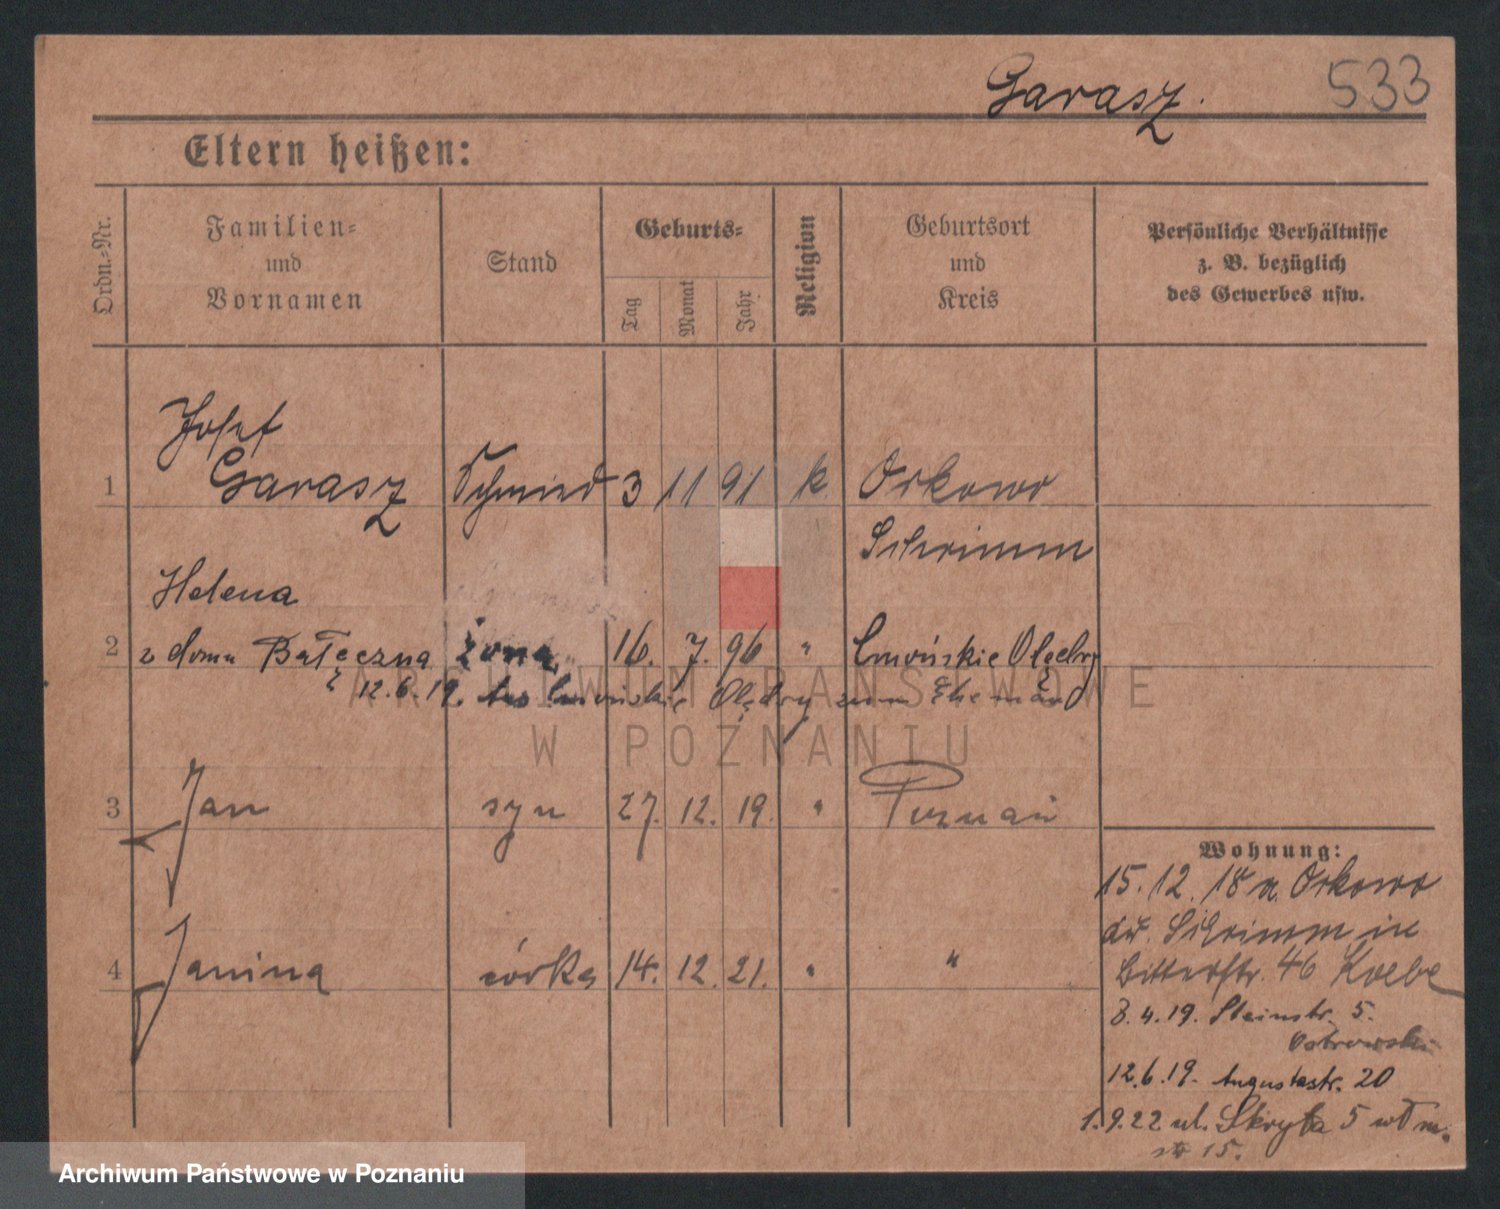 Garasz. 533
Eltern heißen:
Ordn.-Nr.
Familien-
und
Vornamen
Stand
Geburts-
Tag
Monat
Jahr
Religion
Geburtsort
und
Kreis
Persönliche Verhältnisse
z. B. bezüglich
des Gewerbes usw.
Josef
1 Garasz Schmied 3 11 91 k Orkowo
Schrimm
Helena
2 z domu Bałęczna żona 16. 7. 96 " Lwówskie Olędry
12.6.19. aus Olędry zum Ehemann
3 Jan syn 27. 12. 19. " Poznań
4 Janina córka 14. 12. 21. " "
Wohnung:
15.12.18 a. Orkowo
Schrimm in
Bitterstr. 46 Kolbe
8.4.19. Steinstr. 5.
Ostrowski
12.6.19. Augustastr. 20
1.9.22 ul. Skryta 5 wł m.
str 15.
ARCHIWUM PAŃSTWOWE
W POZNANIU
Archiwum Państwowe w Poznaniu